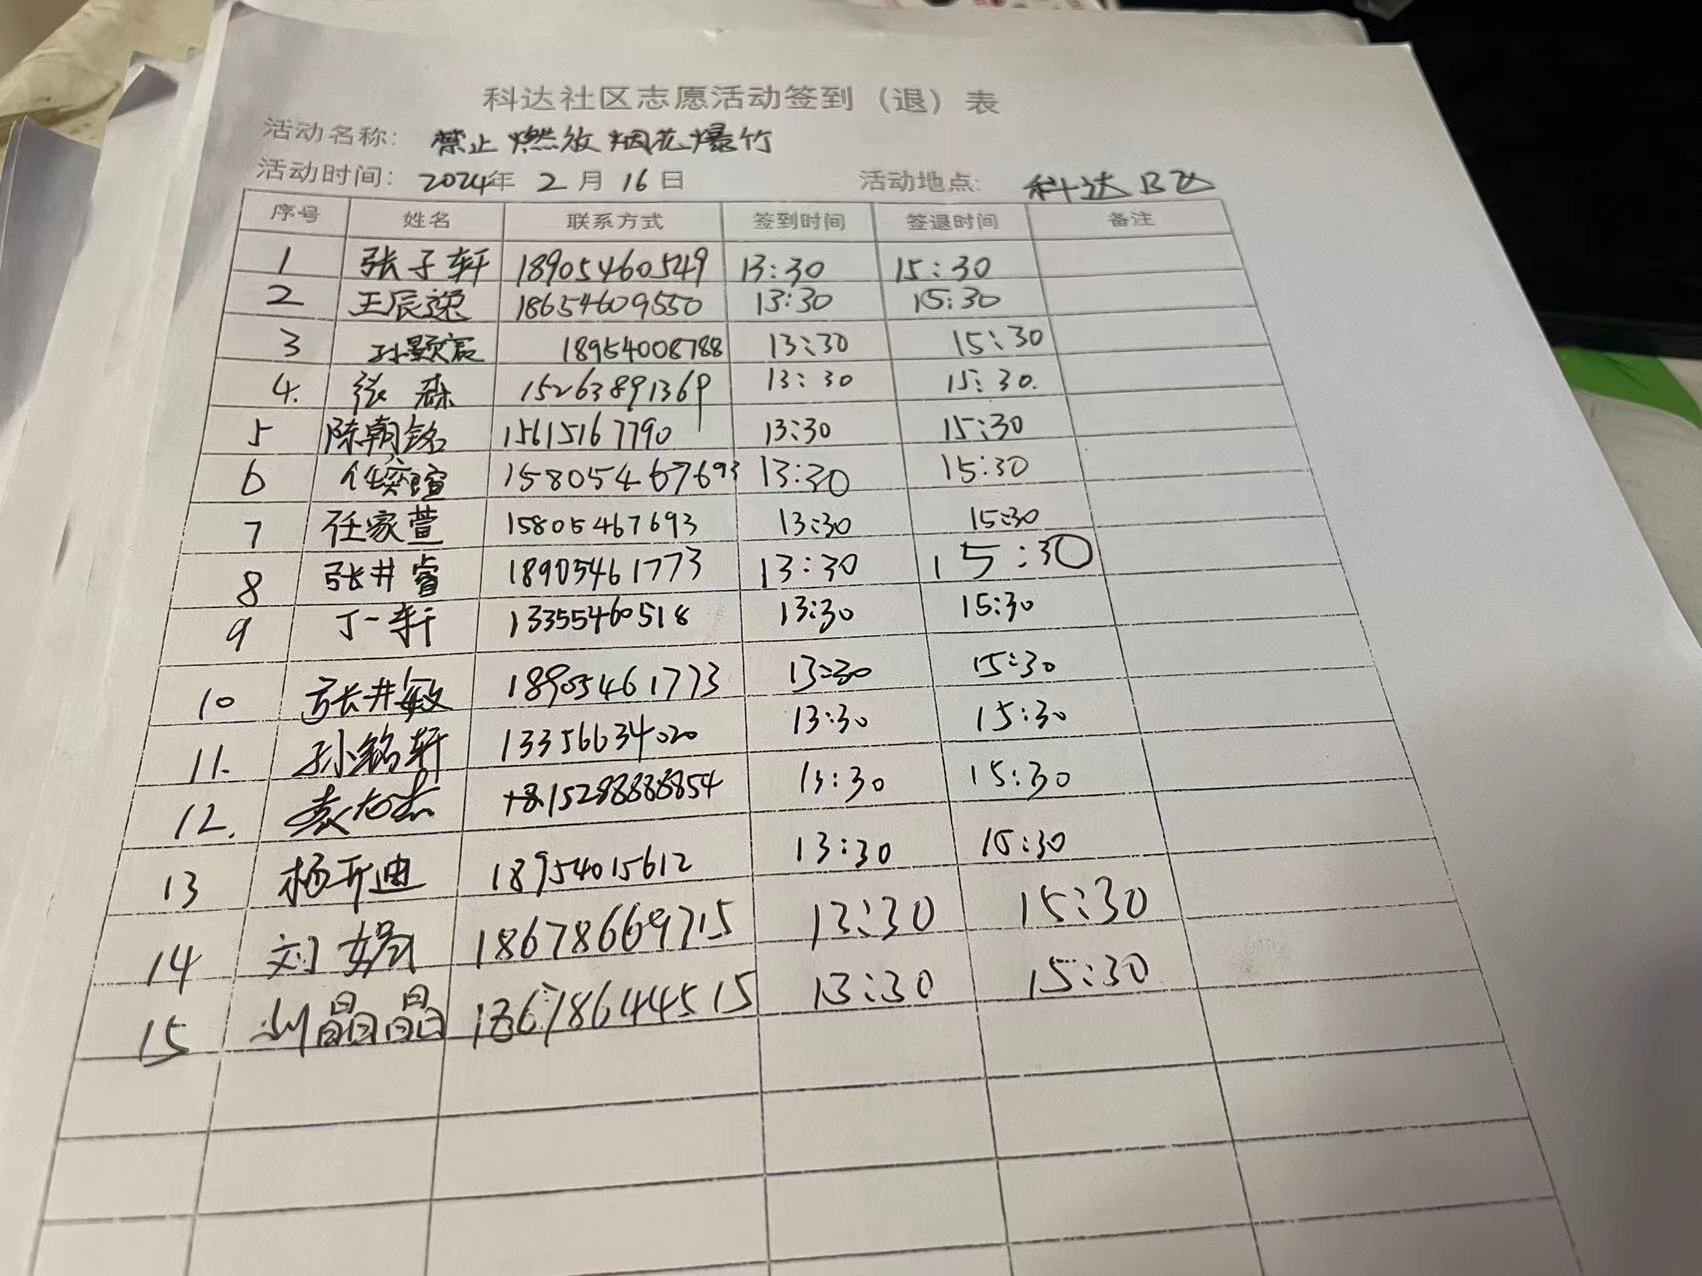 科达社区志愿活动签到（退）表
活动名称: 禁止燃放烟花爆竹
活动时间: 2024年 2 月 16 日 活动地点: 科达B区
序号 姓名 联系方式 签到时间 签退时间 备注
1 张子轩 18905460549 13:30 15:30
2 王辰 18654609550 13:30 15:30
3 孙颢宸 18954008788 13:30 15:30
4. 张森 15263891369 13:30 15:30.
5 陈朝铭 15615167790 13:30 15:30
6 任奕瑄 15805467693 13:30 15:30
7 任家萱 15805467693 13:30 15:30
8 张井睿 18905461773 13:30 15:30
9 丁一轩 13355460518 13:30 15:30
10 张井敏 18905461773 13:30 15:30
11. 孙铭轩 13356634020 13:30 15:30
12. 13:30 15:30
13 杨开迪 18954015612 13:30 15:30
14 刘娟 18678669715 13:30 15:30
15 刘晶晶 18678644515 13:30 15:30